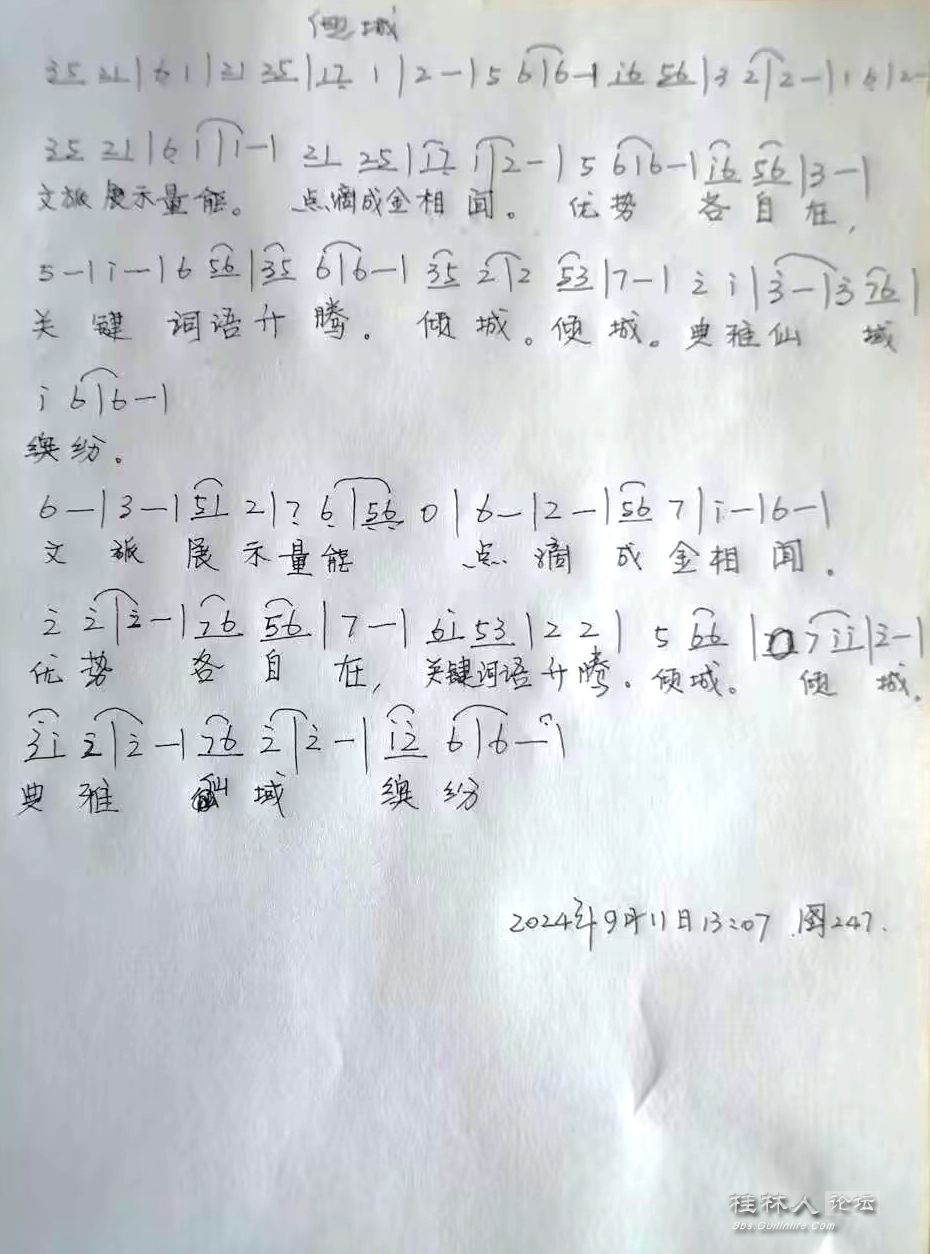 倾城
35 21 | 6 1 | 21 35 | 17 1 | 2 - | 5 6 | 6 - | i6 56 | 3 2 | 2 - | 1 6 | 2 -
35 21 | 6 1 | 1 - | 21 25 | 17 1 | 2 - | 5 6 | 6 - | i6 56 | 3 - |
文旅展示量能。 点滴成金相闻。 优势 各自在,
5 - | i - | 6 56 | 35 6 | 6 - | 35 2 | 2 53 | 7 - | 2 i | 3 - | 3 76 |
关键词语升腾。倾城。倾城。典雅仙域
i 6 | 6 - |
缤纷。
6 - | 3 - | 51 2 | 7 6 | 56 0 | 6 - | 2 - | 56 7 | i - | 6 - |
文旅展示量能 点滴成金相闻.
2 2 | 2 - | 76 56 | 7 - | 6i 53 | 2 2 | 5 66 | 7 ii | 2 - |
优势 各自在, 关键词语升腾. 倾城。 倾城.
3i 2 | 2 - | 76 2 | 2 - | i2 6 | 6 - |
典雅 仙域 缤纷
2024年9月11日13:07 .图247.
桂林人论坛
Bbs.Guilinlife.Com